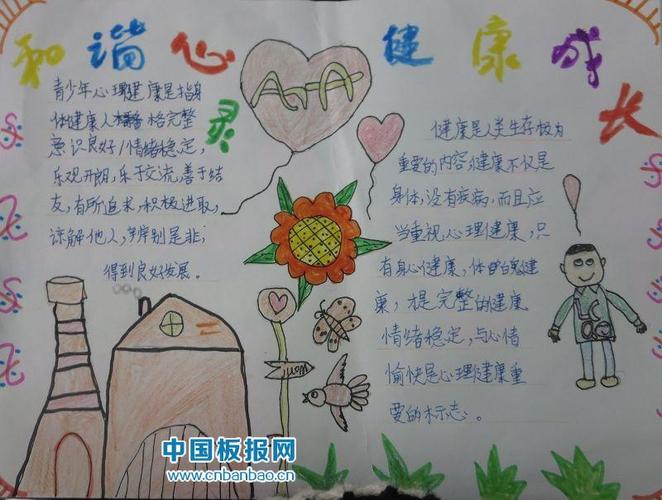 和谐心灵 健康成长
青少年心理健康是指身
体健康人格完整
意识良好/情绪稳定,
乐观开朗,乐于交流,善于结
友,有所追求,积极进取,
谅解他人,辨别是非,
得到良好发展。
健康是人类生存极为
重要的内容,健康不仅是
身体,没有疾病,而且应
当重视心理健康,只
有身心健康,体魄健
康,才是完整的健康
情绪稳定,与心情
愉快是心理健康重
要的标志。
中国板报网
www.cnbanbao.cn